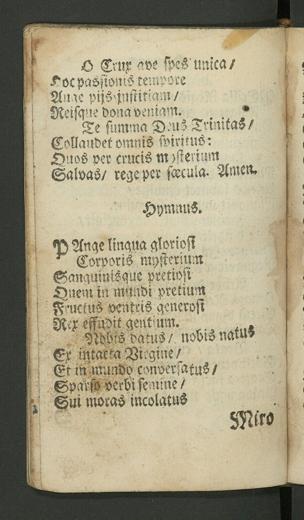 O Crux ave spes unica/
Hoc passionis tempore
Auge pijs justitiam/
Reisque dona veniam.
Te summa Deus Trinitas/
Collaudet omnis spiritus:
Quos per crucis mysterium
Salvas/ rege per sæcula. Amen.
Hymnus.
PAnge lingua gloriosi
Corporis mysterium
Sanguinisque pretiosi
Quem in mundi pretium
Fructus ventris generosi
Rex effudit gentium.
Nobis datus/ nobis natus
Ex intacta Virgine/
Et in mundo conversatus/
Sparso verbi semine/
Sui moras incolatus
Miro